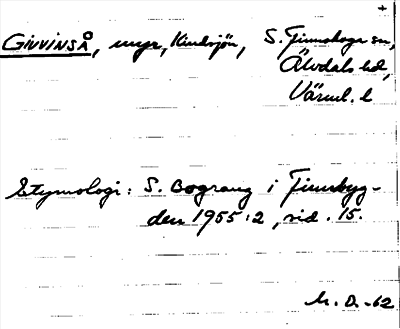 GIVVINSÅ, myr, Kindsjön, S. Finnskoga sn,
Älvdals hd,
Värml. l
Etymologi: S. Bograng i Finnbyg-
den 1955:2, sid. 15.
M. D. -62